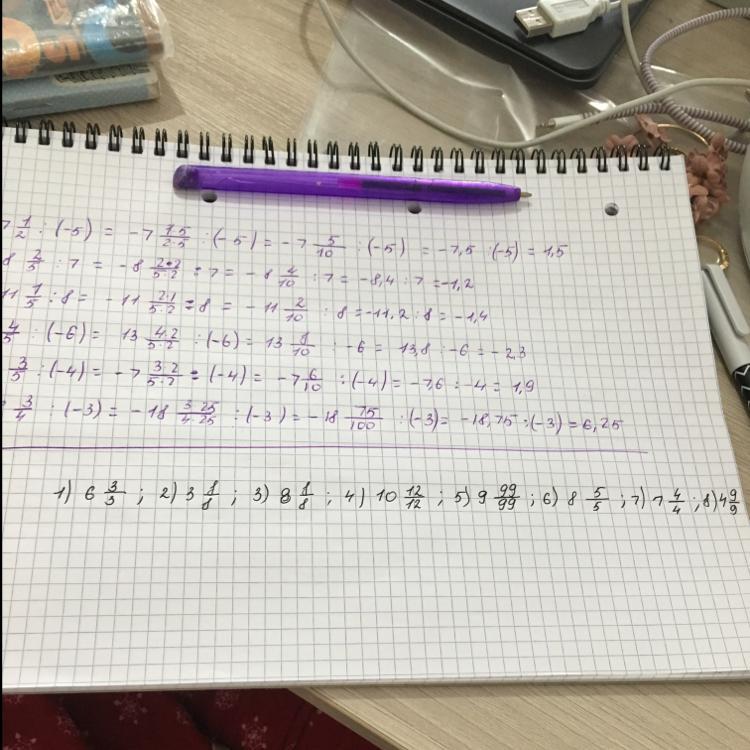 7 1/2 : (-5) = -7 1·5/2·5 : (-5) = -7 5/10 : (-5) = -7,5 : (-5) = 1,5
8 2/5 : 7 = -8 2·2/5·2 : 7 = -8 4/10 : 7 = -8,4 : 7 = -1,2
11 1/5 : 8 = -11 2·1/5·2 : 8 = -11 2/10 : 8 = -11,2 : 8 = -1,4
4/5 : (-6) = 13 4·2/5·2 : (-6) = 13 8/10 : -6 = 13,8 : -6 = -2,3
3/5 : (-4) = -7 3·2/5·2 : (-4) = -7 6/10 : (-4) = -7,6 : -4 = 1,9
3/4 : (-3) = -18 3·25/4·25 : (-3) = -18 75/100 : (-3) = -18,75 : (-3) = 6,25
1) 6 3/3 ; 2) 3 8/8 ; 3) 8 8/8 ; 4) 10 12/12 ; 5) 9 99/99 ; 6) 8 5/5 ; 7) 7 4/4 ; 8) 4 9/9